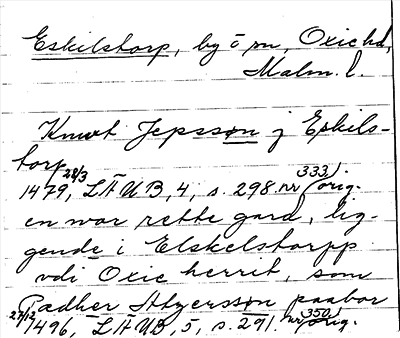 Eskilstorp, by o sn, Oxie hd,
Malm. l.
Knwt Jepsson j Eskils-
torp
28/3 1479, LÄUB, 4, s. 298. nr 333/ orig.
enwor rette gard, lig-
gende i Elskelstorpp
vdi Oxie herrit, som
Padher Atyersson paabor
27/12 1496, LÄUB, 5, s. 291. nr 350/ orig.